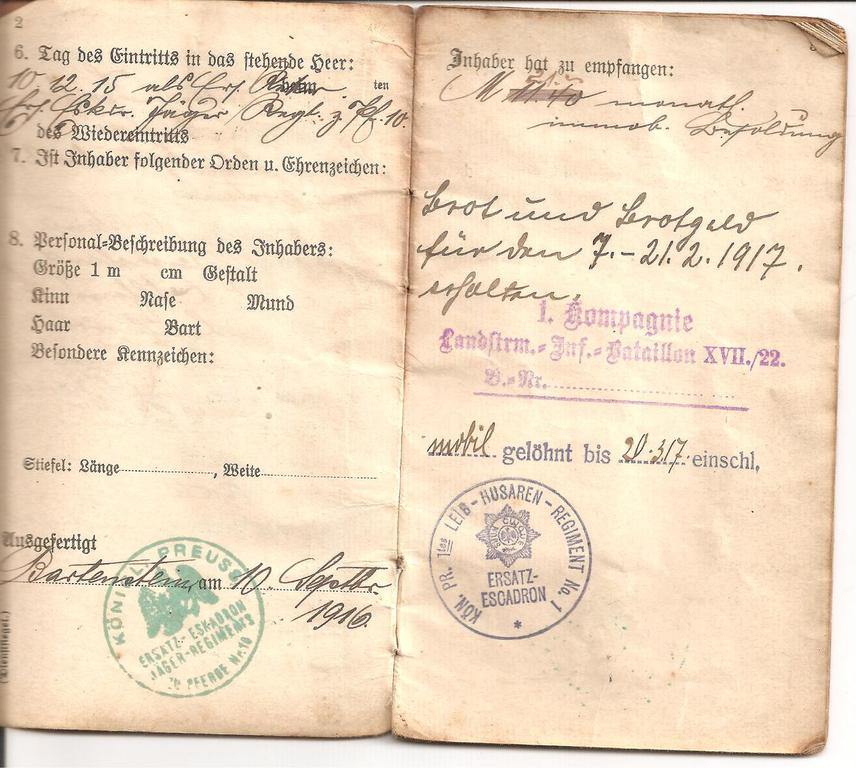 2
6. Tag des Eintritts in das stehende Heer:
10. 12. 15 als Ers. ten
Ers. Eskr. Jäger Regt. z. Pf. 10.
des Wiedereintritts
7. Ist Inhaber folgender Orden u. Ehrenzeichen:
8. Personal-Beschreibung des Inhabers:
Größe 1 m cm Gestalt
Kinn Nase Mund
Haar Bart
Besondere Kennzeichen:
Stiefel: Länge, Weite
Ausgefertigt
Bartenstein, am 10. Septbr.
1916.
KÖNIGL. PREUSS.
ERSATZ-ESKADRON
JÄGER-REGIMENTS
ZU PFERDE Nr. 10
(Dienstsiegel.)
Inhaber hat zu empfangen:
M monatl.
immob. Besoldung
Brot und Brotgeld
für den 7.-21.2.1917.
erhalten.
1. Kompagnie
Landstrm.-Inf.-Bataillon XVII./22.
B.-Nr.
mobil gelöhnt bis 20.3.17. einschl.
KÖN. PR. 1tes LEIB-HUSAREN-REGIMENT No. 1
SUUM CUIQUE
ERSATZ-
ESCADRON
*